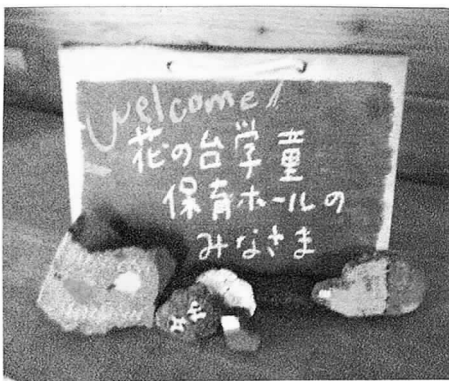 Welcome!
花の台学童
保育ホールの
みなさま